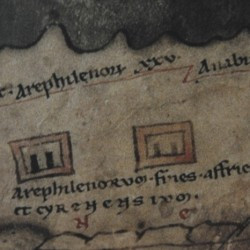 Arephilenorū XXV.
Arephilenorum·fines·affric
et cyrenensium·